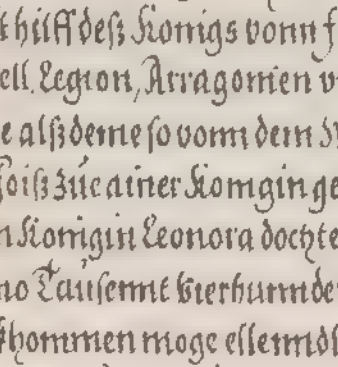 hilff deß Konigs vonn
Legion, Arragonien
alß deme so vonn dem
zue ainer Konigin
Konigin Leonora dochte
Tausennt vierhunnde
khommen moge ellenndt